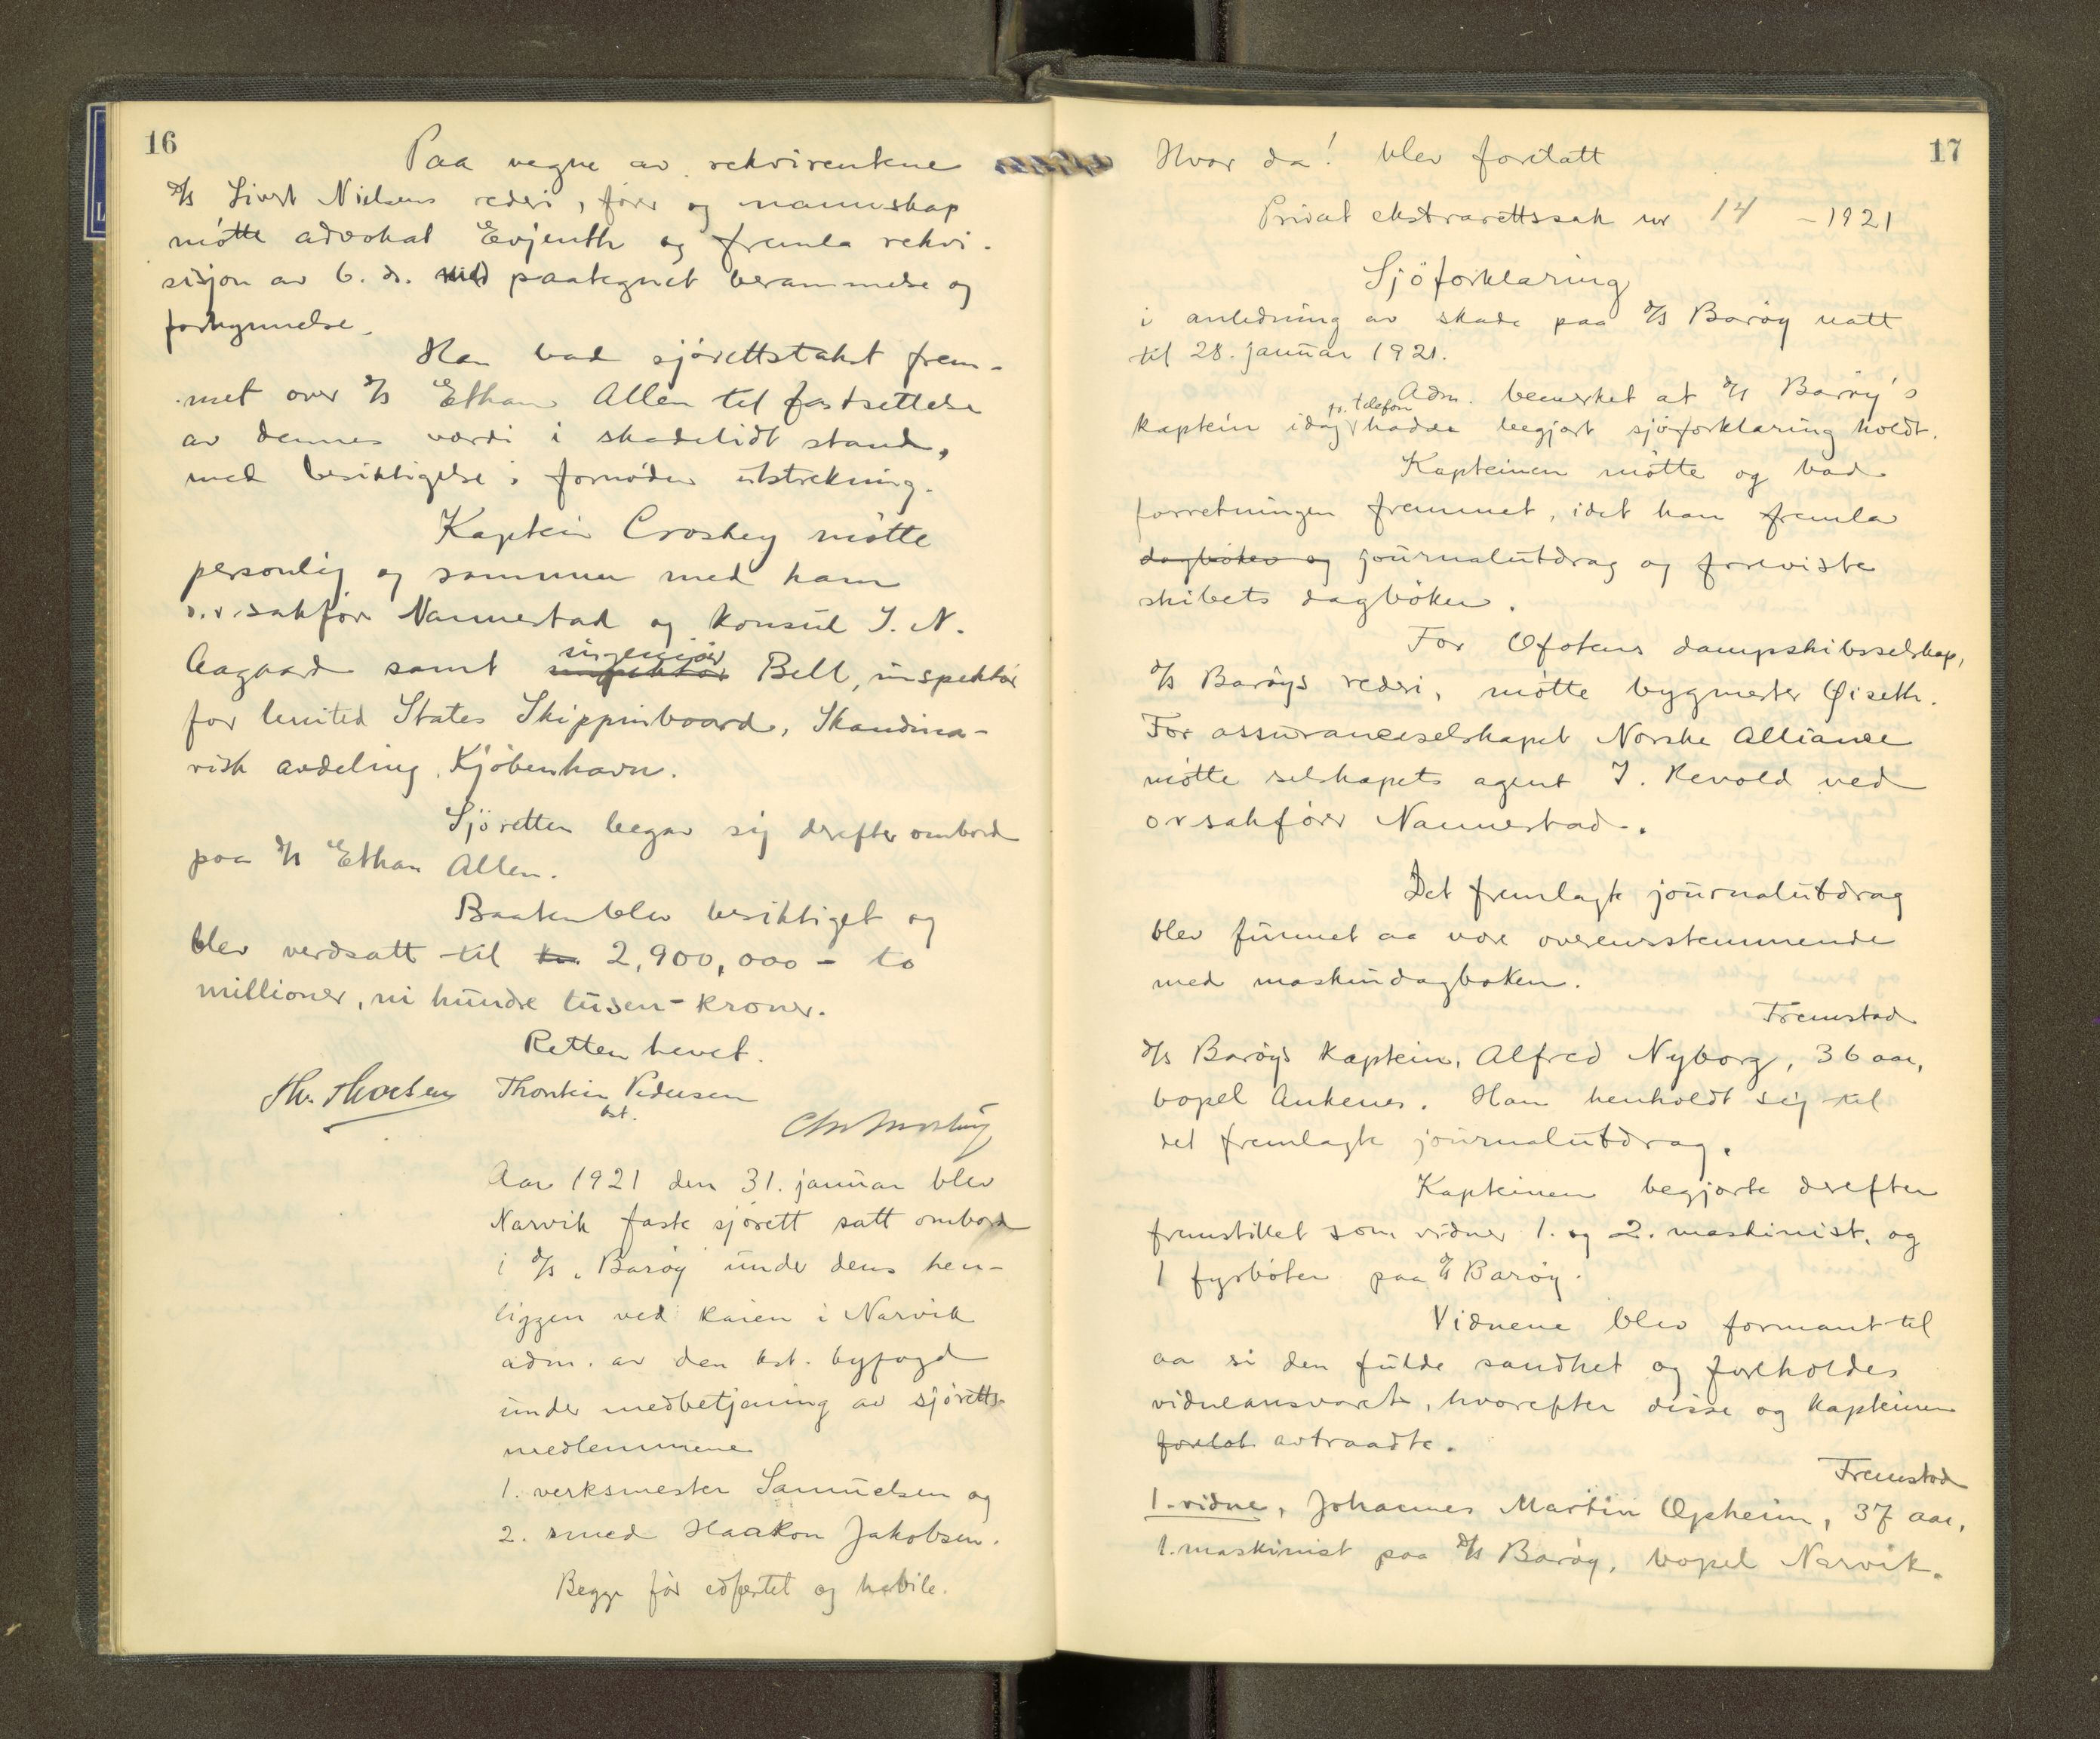 16
Paa vegne av rekvirentene
d/s Sivert Nielsens rederi, fører og mannskap
møtte advokat Evjenth og fremla rekvi-
sisjon av 6. ds. med paategnet berammelse og
forkynnelse.
Han bad sjørettstakst frem-
met over d/s Ethan Allen til fastsettelse
av dennes værdi i skadelidt stand,
med besiktigelse i fornøden utstrekning.
Kaptein Croskey møtte
personlig og sammen med ham
o.r.sakfør Nannestad og konsul J. N.
Aagaard samt inspektør ingeniør Bell, inspektør
for United States Skippinboard, Skandina-
visk avdeling, Kjøbenhavn.
Sjøretten begav sig derefter ombord
paa d/s Ethan Allen.
Baaten blev besiktiget og
blev verdsatt til kr. 2,900,000 - to
millioner, ni hundre tusen - kroner.
Retten hevet.
Th. Thorsen Thorstein Pedersen
kst.
Aar 1921 den 31. januar blev
Narvik faste sjørett satt ombord
i d/s "Barøy under dens hen-
liggen ved kaien i Narvik
adm. av den kst. byfogd
under medbetjening av sjøretts-
medlemmene
1. verksmester Samuelsen og
2. smed Haakon Jakobsen.
Begge før edfæstet og habile.
17
Hvor da! blev foretatt
Privat ekstrarettssak nr 14 - 1921
Sjöforklaring
i anledning av skade paa d/s Barøy natt
til 28. januar 1921.
Adm. bemerket at d/s Barøy's
kaptein idag pr. telefon hadde begjært sjöforklaring holdt.
Kapteinen møtte og bad
forretningen fremmet, idet han fremla
dagboken og journalutdrag og foreviste
skibets dagböker.
For Ofotens dampskibsselskap,
d/s Barøys rederi, møtte bygmester Øiseth.
For assuranceselskapet Norske Alliance
møtte selskapets agent J. Hevold ved
orsakfører Nannestad.
Det fremlagte journalutdrag
blev funnet aa være overensstemmende
med maskindagboken.
Fremstod
d/s Barøys kaptein, Alfred Nyborg, 36 aar,
bopel Ankenes. Han henholdt sig til
det fremlagte journalutdrag.
Kapteinen begjærte derefter
fremstillet som vidner 1. og 2. maskinist, og
1 fyrbøter paa d/s Barøy.
Vidnene blev formant til
aa si den fulde sandhet og foreholdes
vidneansvaret, hvorefter disse og kapteinen
forlot avtraadte.
Fremstod
1. vidne, Johannes Martin Opheim, 37 aar,
1. maskinist paa d/s Barøy, bopel Narvik.